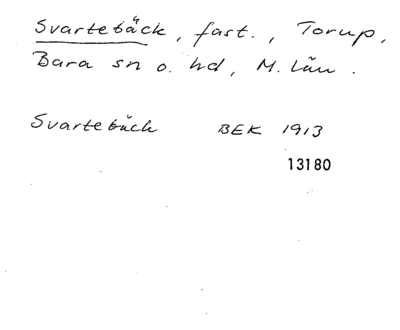 Svartebäck, fast., Torup,
Bara sn o. hd, M. län.
Svartebäck BEK 1913
13180